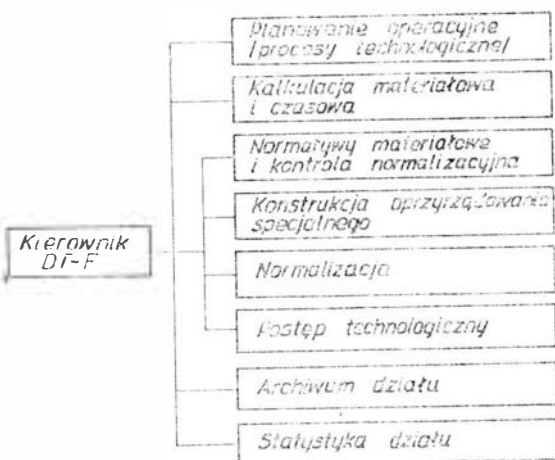 Planowanie operacyjne
/procesy technologiczne/
Kalkulacja materiałowa
i czasowa
Normatywy materiałowe
i kontrola normalizacyjna
Konstrukcja oprzyrządowania
specjalnego
Kierownik
DT-F
Normalizacja
Postęp technologiczny
Archiwum działu
Statystyka działu